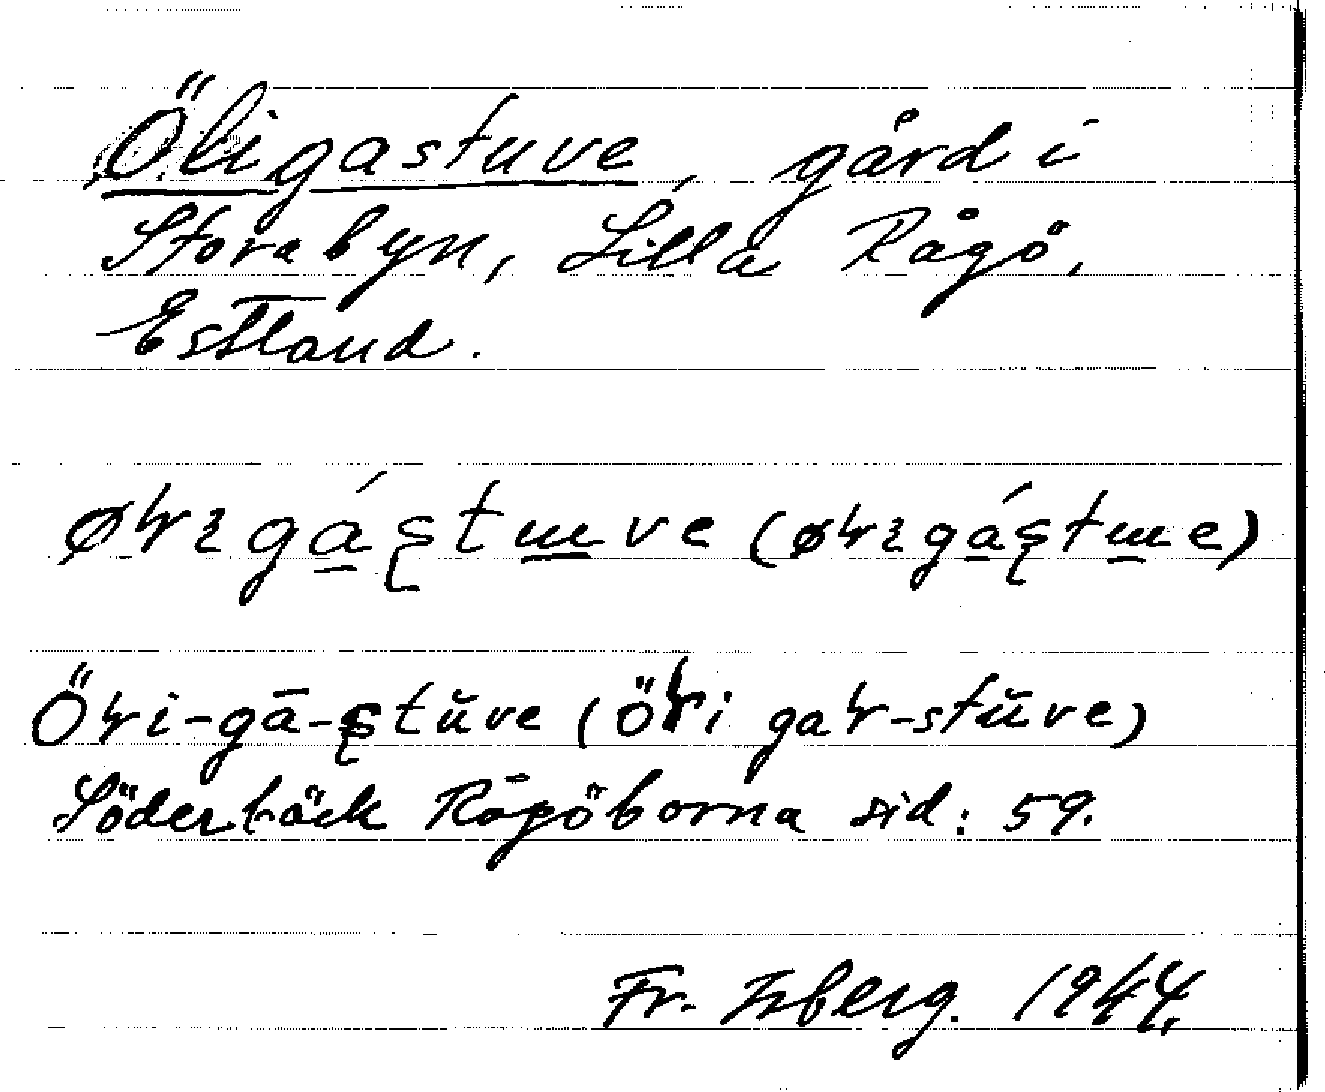 Öligastuve, gård i
Storabyn, Lilla Rågö,
Estland.
øɽıgá̱ʂtɯ̱ve (øɽıgá̱ʂtɯ̱e)
Öɽi-gā-ʂtŭve (öɽi gaɽ-stŭve)
Söderbäck Rågöborna sid: 59.
Fr. Isberg. 1944.